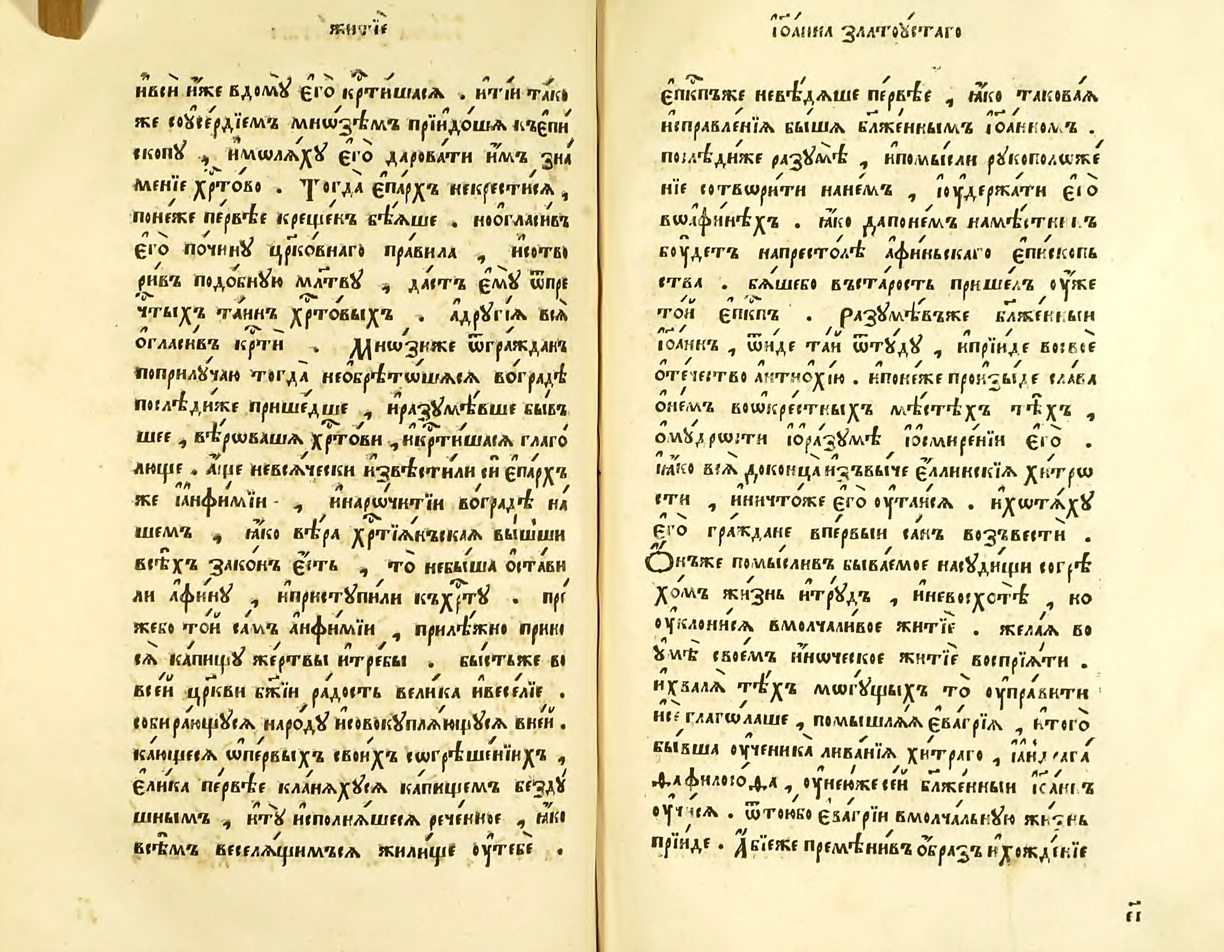 житїѐ
и҆всѝ и҆́же вдомꙋ̀ є҆гѡ̀ кр҃тишасѧ . итїи та́ко
же соусе́рдїемъ мнѡ́зѣмъ прїидоша̀ къепи́
скопꙋ , и҆молѧ́хꙋ є҆го̀ дарова́ти и҆́мъ зна́
менїе хр҃то́во . Тогда̀ є҆па́рхъ некрести́сѧ ,
поне́же пе́рвѣе креще́нъ бѣ́ѧше . нооглаcи́въ
є҆го̀ почи́нꙋ цр҃ко́внаго пра́вила , исотво
ри́въ подо́бнꙋю мл҃твꙋ , да́стъ є҆мꙋ̀ ѿпре
чт҃ыхъ та́инъ хр҃то́выхъ . адрꙋгі́ѧ всѧ̀
огласи́въ кр҃тѝ . Мно́зиже ѿгра́жданъ
поприлꙋ́чаю тогда̀ необрѣ́тѡшасѧ во гра́дѣ
послѣ́диже прише́дше , ира́зꙋмѣ́вше бы́въ
шее , вѣ́рѡваша хр҃то́ви , икр҃ти́шасѧ глаго́
люще . а҆́ще невсѧ́чески и҆звѣ́стили сѝ є҆па́рхъ
же і҆анфимїи , инарѡ́читїи во гра́дѣ на́
шемъ , ꙗ҆́ко вѣ́ра хр҃тїѧ́нъскаѧ вы́шши
всѣ́хъ зако́нъ є҆́сть , то̀ небы́ша оста́ви
ли афи́нꙋ , ипристꙋпи́ли къхр҃тꙋ̀ . прї
же́бо то́й са́мъ анфимїи , прилѣ́жно прино
сѧ̀ ка́пищꙋ же́ртвы итре́бы . бы́стьже во
все́й цр҃кви бж҃їи ра́дость вели́ка ивесе́лїе .
собира́ющꙋсѧ наро́дꙋ исовокꙋплѧ́ющꙋсѧ вне́й .
ка́ющесѧ ѡпе́рвыхъ свои́хъ сѡгрѣше́нїихъ ,
є҆ли́ка пе́рвѣе кла́нѧхꙋсѧ ка́пищемъ безд́ꙋ
шнымъ , итꙋ̀ исполнѧ́шесѧ рече́нное , ꙗ҆́ко
всѣ́мъ веселѧ́щимъсѧ жили́ще оу҆тебѐ .
і҆ѡа́нна златоꙋ́стаго
є҆пк҃пъже невѣ́дѧше пе́рвѣе , ꙗ҆́ко такова́ѧ
исправле́нїѧ бы́шѧ бл҃же́ннымъ і҆ѡа́нномъ .
послѣ́диже разꙋмѣ̀ , ипомы́сли рꙋкополѡже́
нїе сотвѡри́ти нане́мъ , іоудержа́ти є҆го̀
вѡафи́нѣхъ . ꙗ҆́ко дапоне́мъ намѣ́стникъ
боу́детъ напресто́лѣ афи́ньскаго є҆пи́скопь
ства . бѧ́шебо въста́рость прише́лъ оу҆́же
то́й є҆пк҃пъ . Разꙋмѣ́въже бл҃же́нныи
і҆ѡа́ннъ , ѿи́де та́й ѿтꙋ́дꙋ , ипрїи́де восвоѐ
оте́чество антиохі́ю . ипоне́же произы́де сла́ва
оне́мъ воѡкре́стныхъ мѣ́стѣхъ тѣ́хъ ,
омꙋ́дрости іора́зꙋмѣ іосмире́нїи є҆го̀ .
ꙗ҆́ко всѧ̀ доконца̀ изъвы́че є҆́ллинскїѧ хи́трѡ
сти , иничто́же є҆го̀ оу҆таи́сѧ . ихѡтѧ́хꙋ
є҆го̀ гра́ждане впе́рвыи са́нъ возъвестѝ .
Ѻ҆́нъже помы́сливъ быва́емое насꙋди́щи согрѣ
хо́мъ жи́знь итрꙋ́дъ , иневосхотѣ̀ , но
оу҆клони́сѧ вмолчали́вое житїѐ . жела́ѧ во
ᲂумѣ̀ свое́мъ и҆́нѡческое житїѐ воспрїѧ́ти .
ихва́лѧ тѣ́хъ могꙋ́щыхъ то̀ оу҆пра́вити
исе глаго́лаше , помышлѧ́ѧ є҆ва́грїѧ , итого̀
бы́вша оу҆ченика̀ лива́нїѧ хи́траго , і҆андрага́
фа филосо́фа , оу҆нею́жесе́й бл҃же́нныи і҆ѡа́ннъ
оу҆чи́сѧ . ѿтою́бо є҆ва́грїи вмолча́льнꙋю жи́знь
прїи́де . А҆́бїеже премѣни́въ о҆́бразъ и хожде́нїе
є҃і